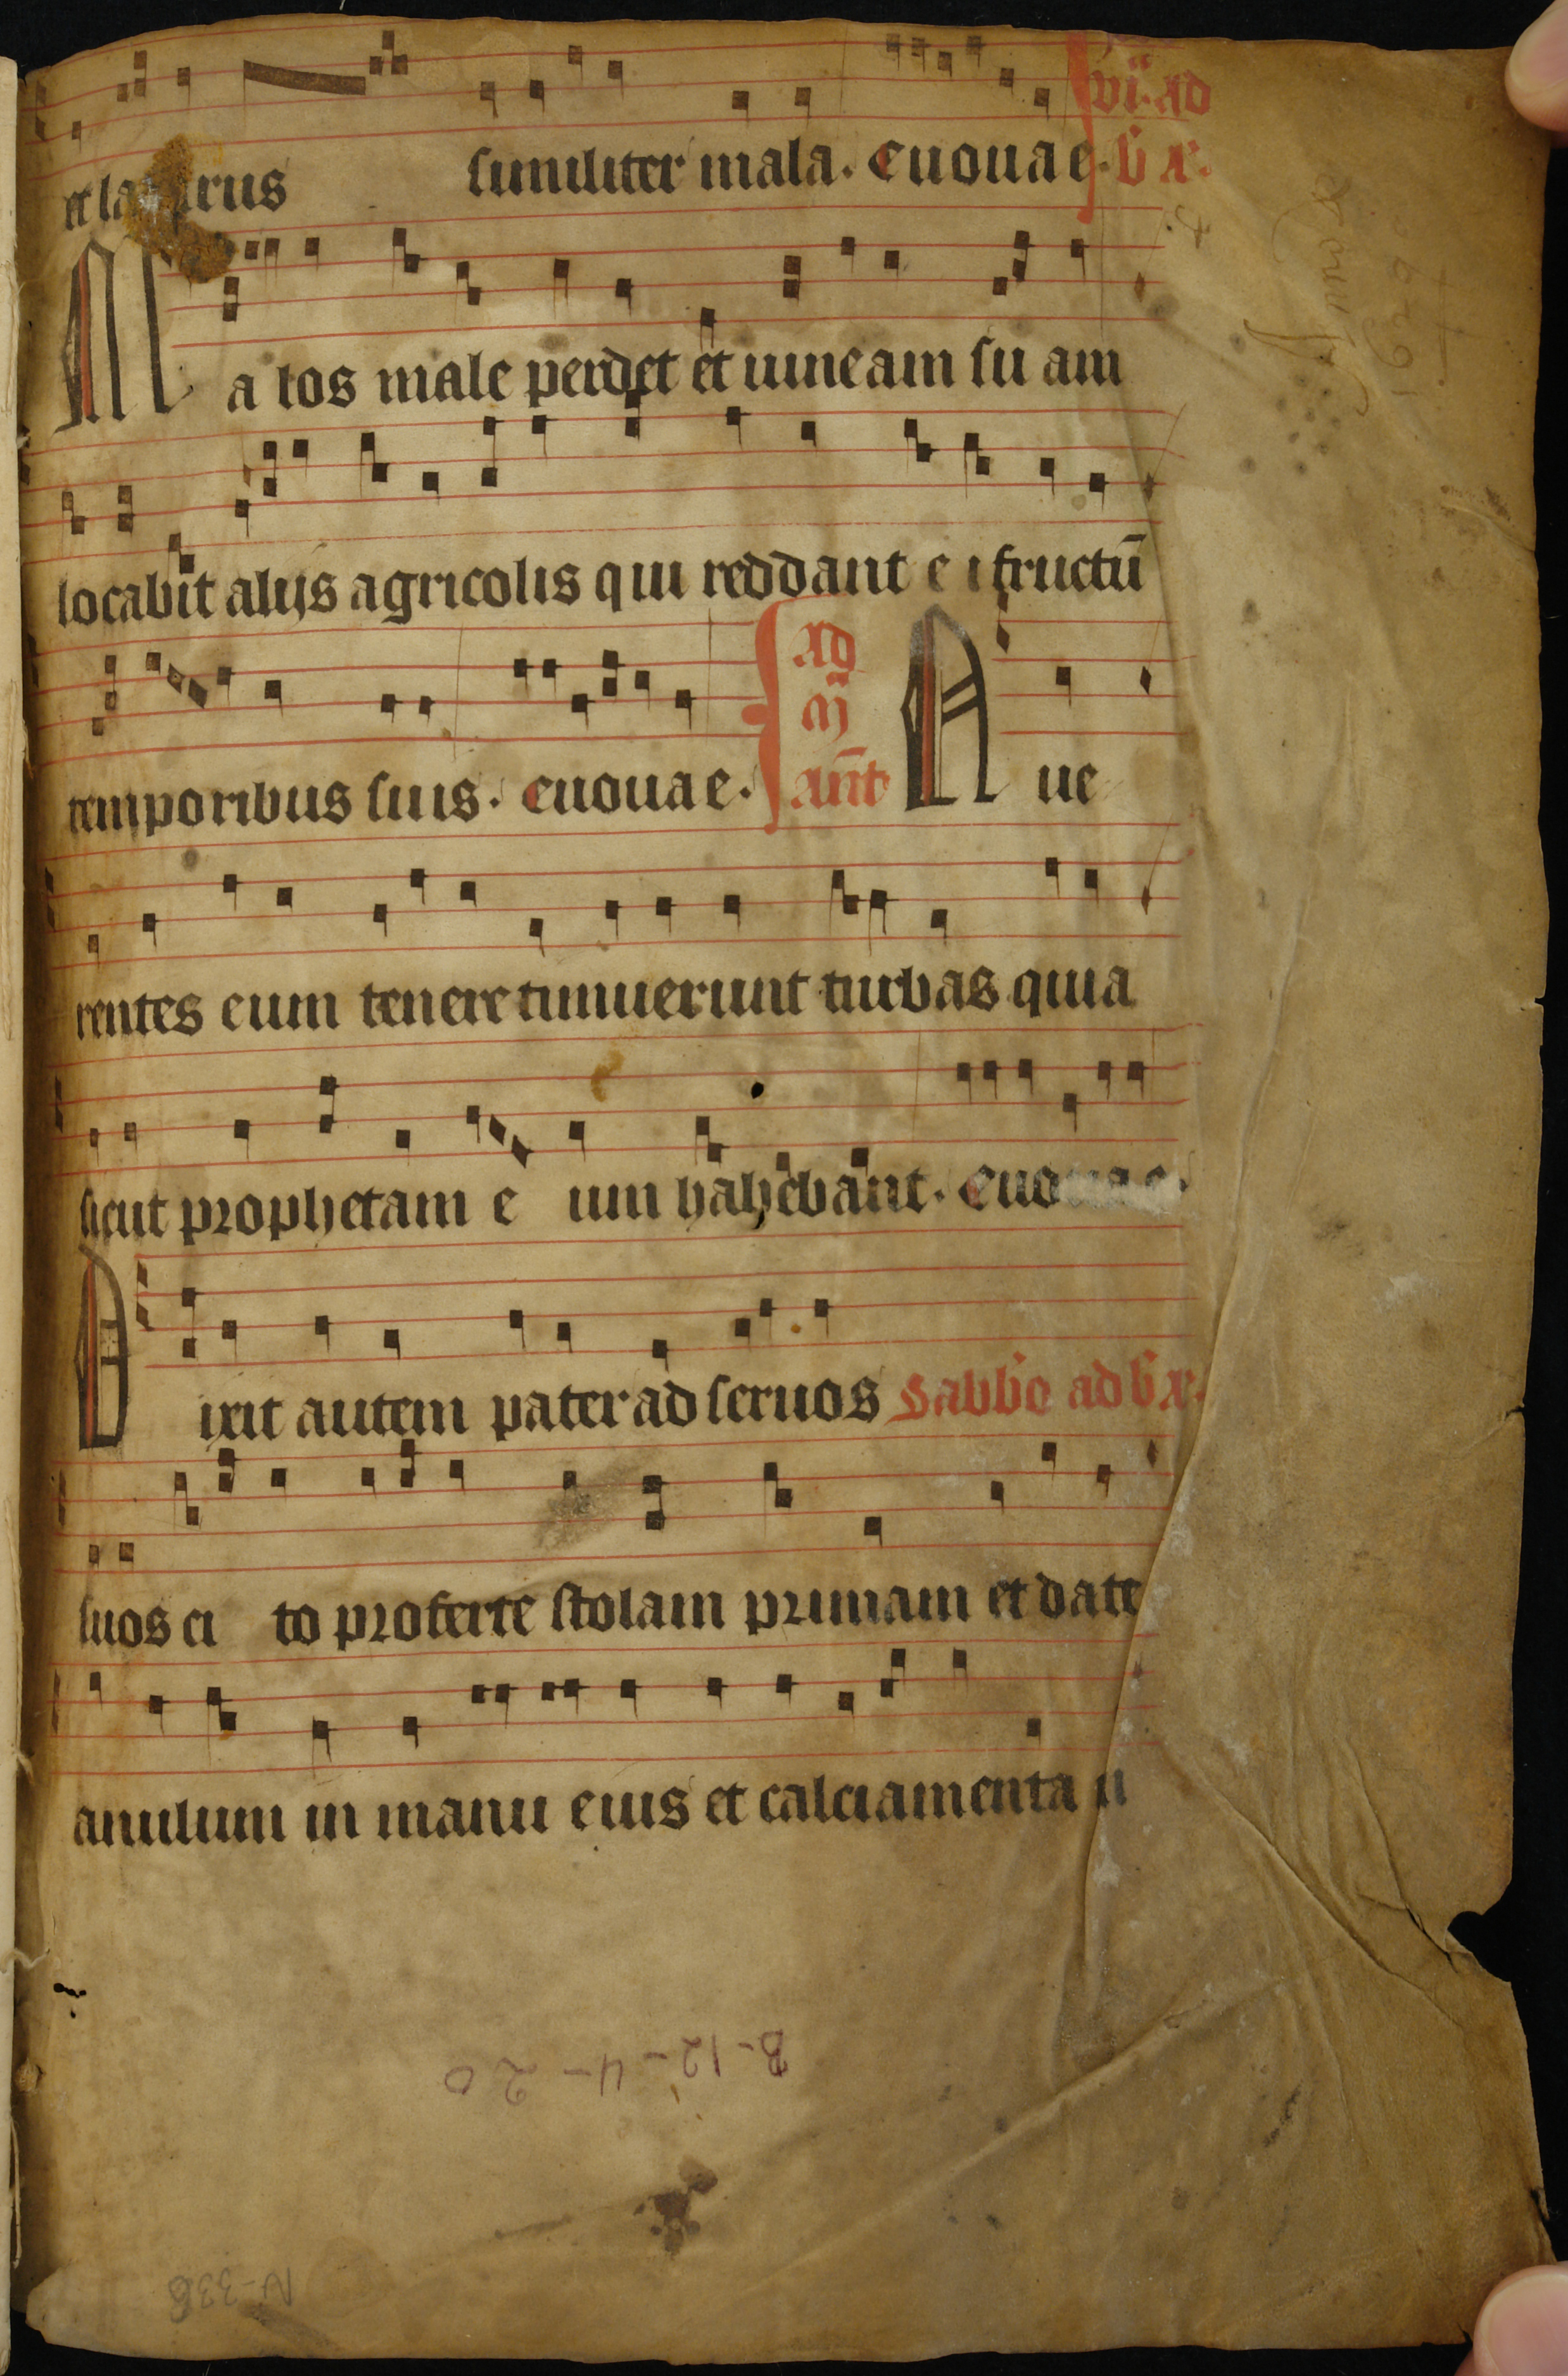 et la rus similiter mala. euouae. vi. ad
b x.
Malos male perdet et uineam suam
locabit alijs agricolis qui reddant ei fructū
temporibus suis. euouae. ad m ant Aue
rentes eum tenere timuerunt turbas quia
sicut prophetam eum habebant. euouae.
Dixit autem pater ad seruos Sabbo ad b x.
suos cito proferte stolam primam et date
anulum in manu eius et calciamenta i
B-12-4-20
N-336